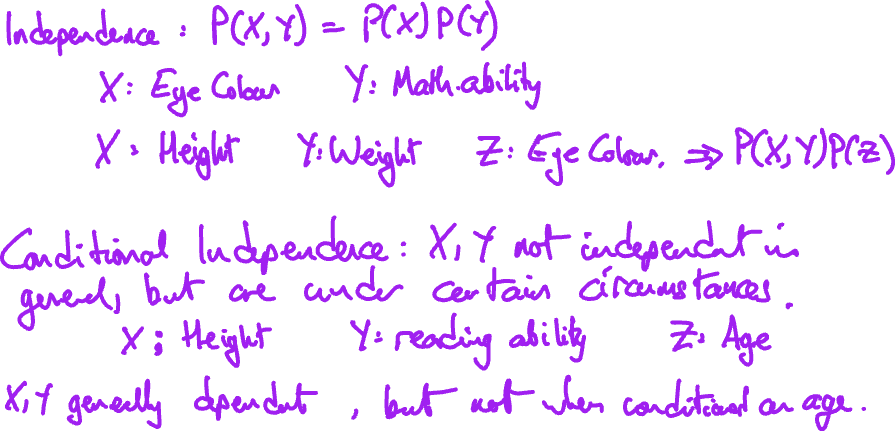 Independence : P(X,Y) = P(X)P(Y)
X: Eye Colour Y: Math.ability
X: Height Y: Weight Z: Eye Colour. ⇒ P(X,Y)P(Z)
Conditional Independence : X, Y not independent in
general, but are under certain circumstances.
X: Height Y: reading ability Z: Age
X, Y generally dependent, but not when conditional on age.